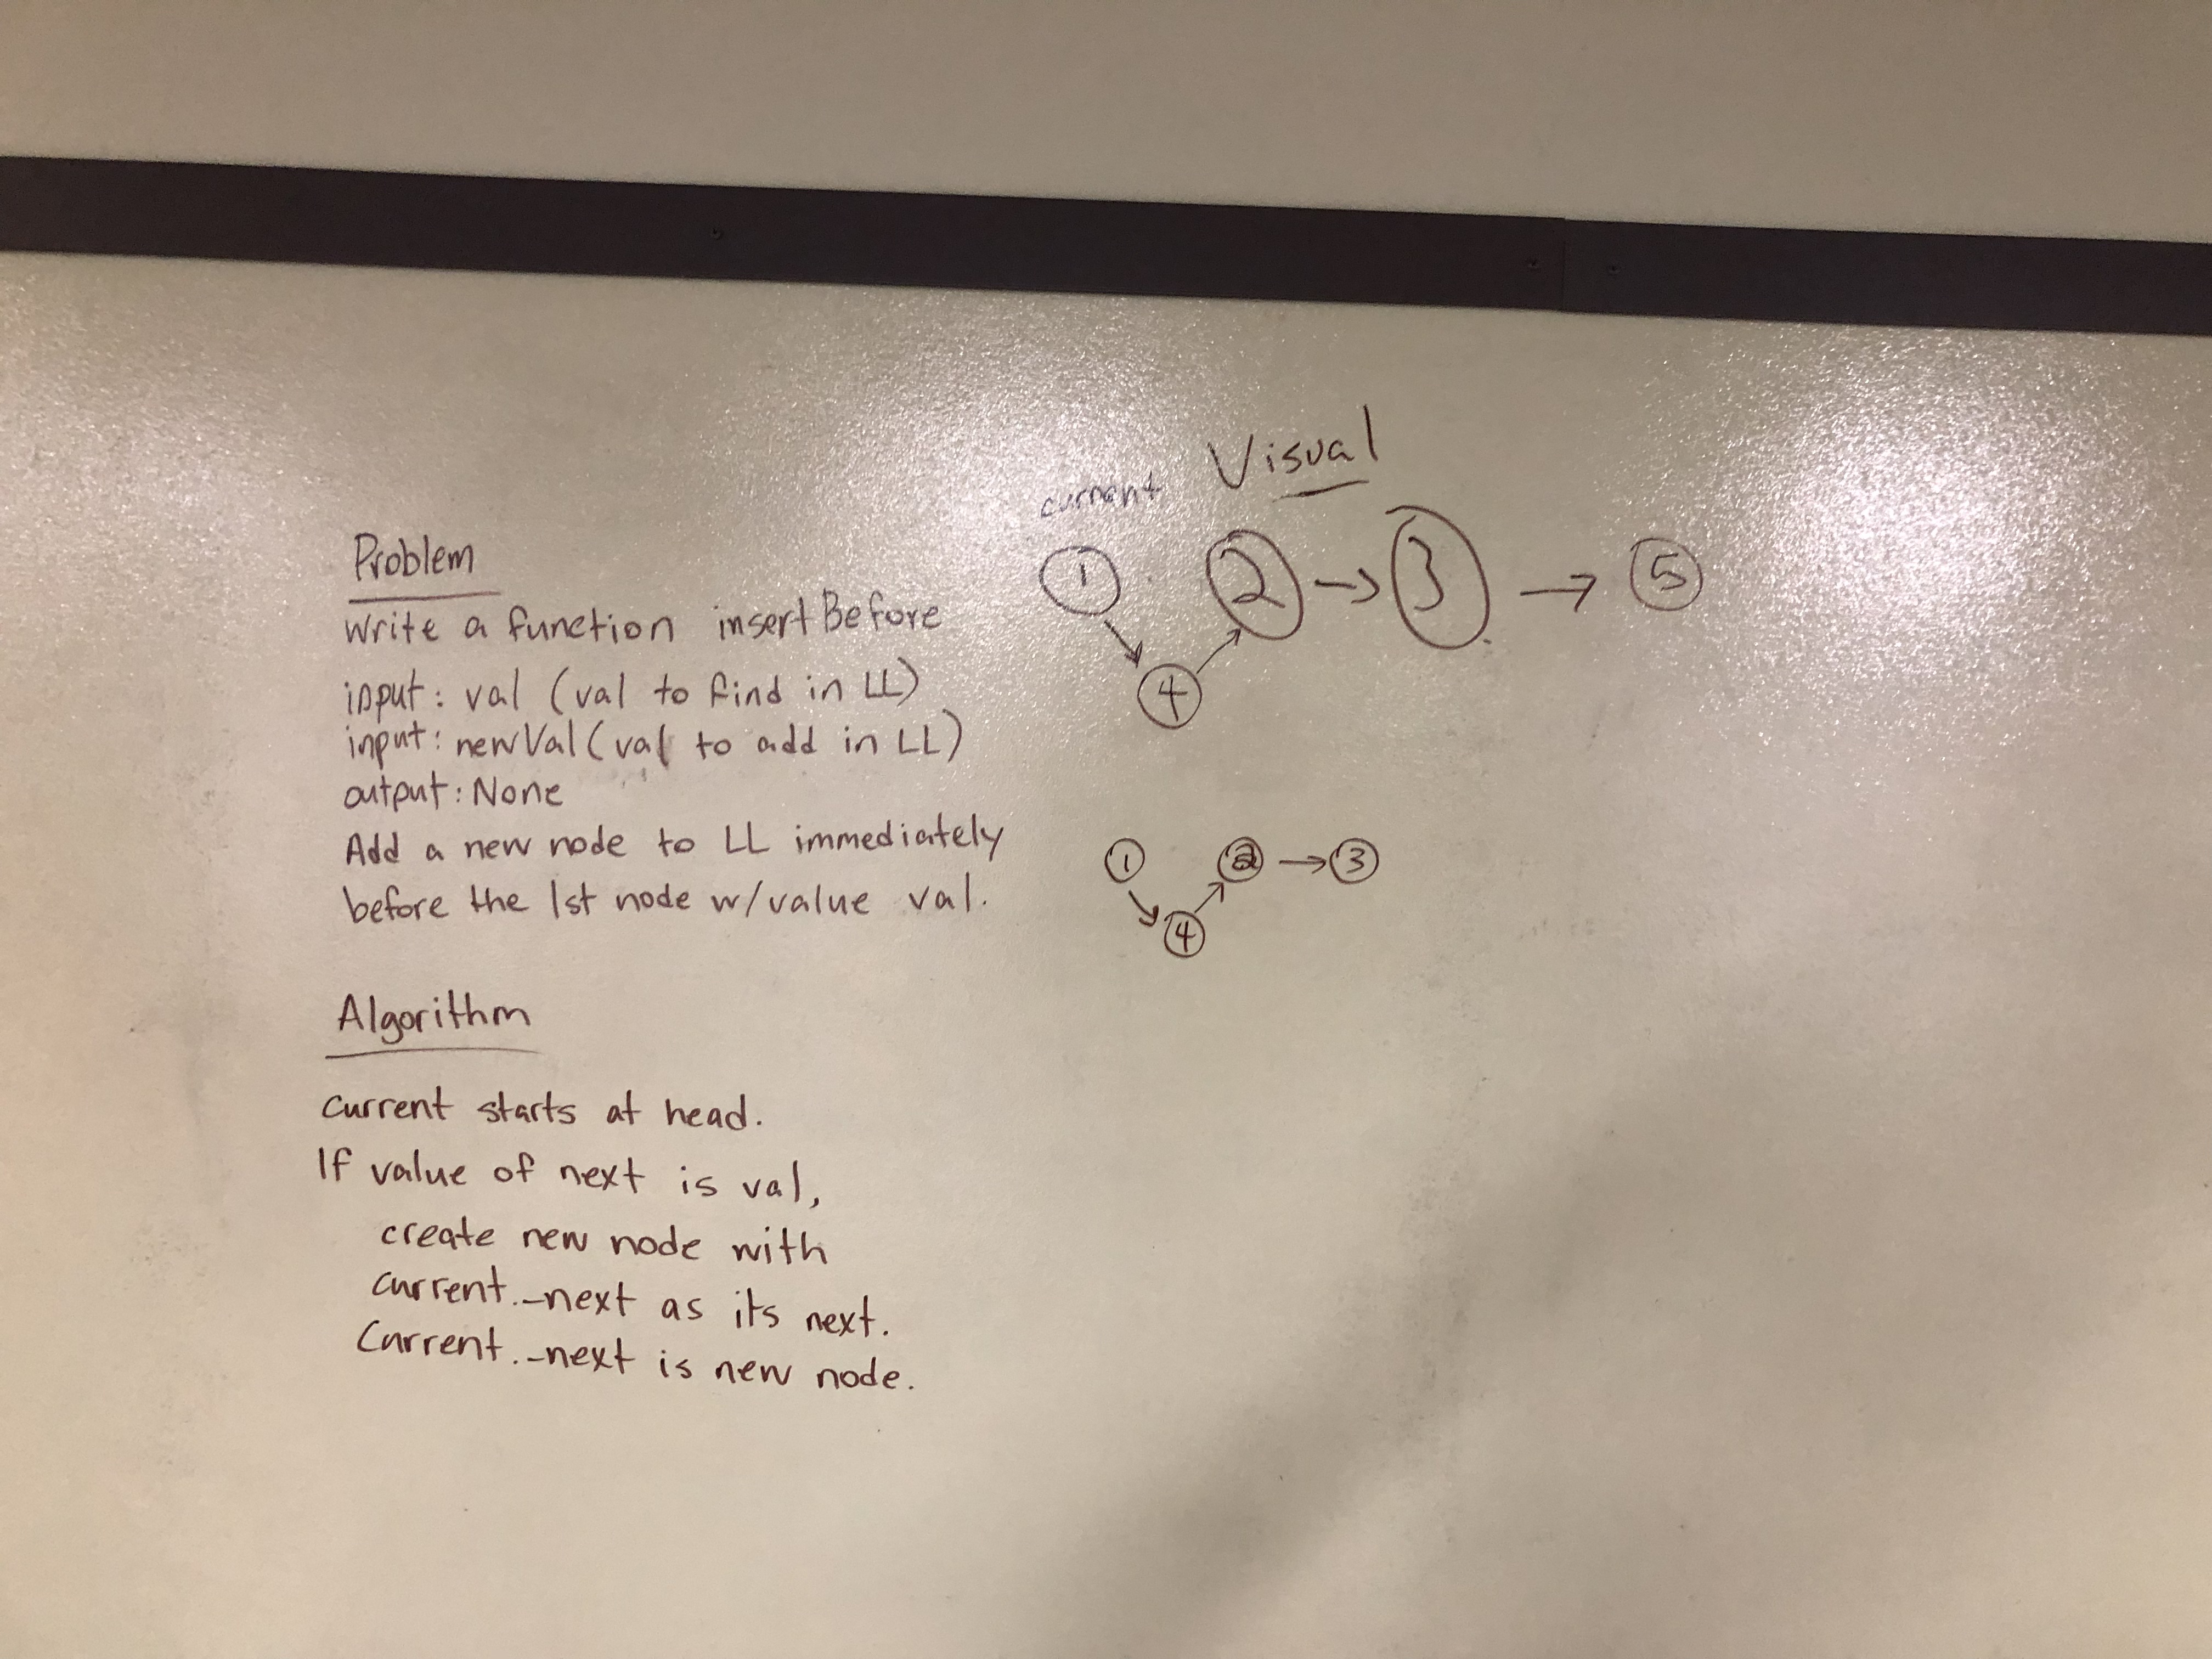 Problem
write a function insertBefore
input: val (val to find in LL)
input: newVal (val to add in LL)
output: None
Add a new node to LL immediately
before the 1st node w/value val.
Algorithm
current starts at head.
If value of next is val,
create new node with
current._next as its next.
Current._next is new node.
Visual
current
1 2 → 3 → 5
4
1 2 → 3
4